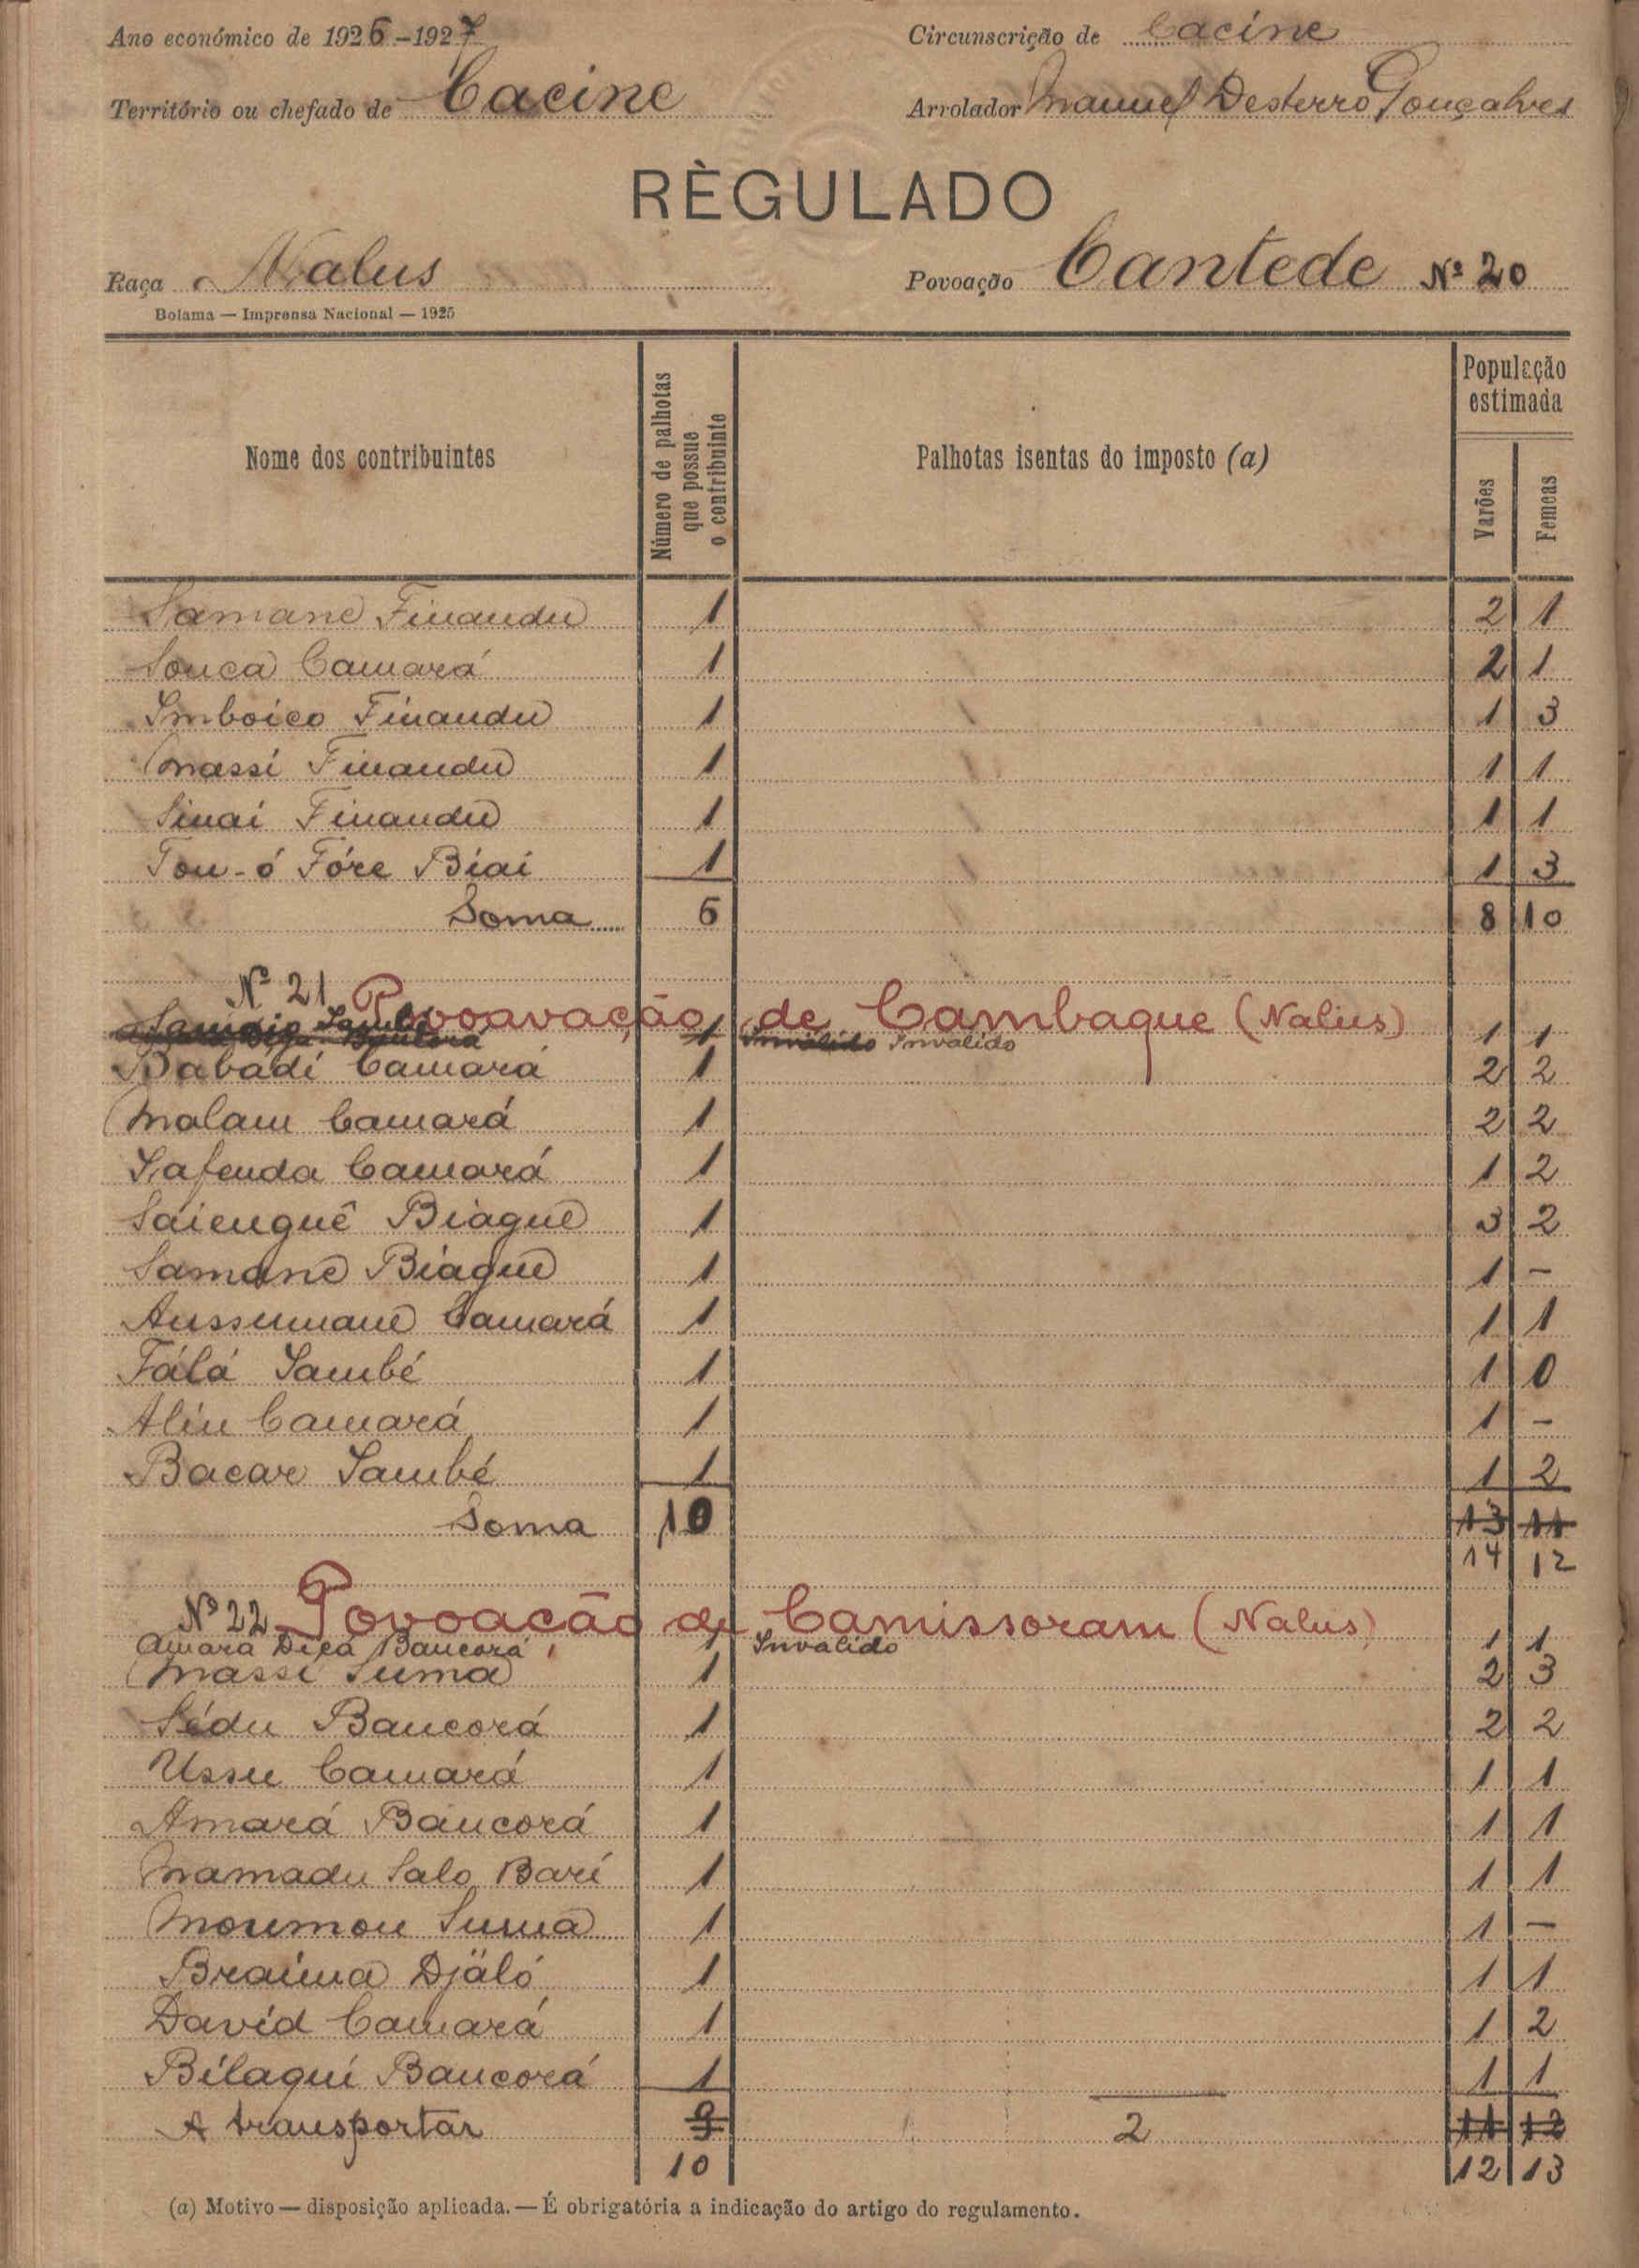 Ano económico de 1926-1927 Circunscrição de Cacine
Território ou chefado de Cacine Arrolador Manuel Desterro Gonçalves
RÈGULADO
Raça Nalus Povoação Cantede Nº 20
Bolama — Imprensa Nacional — 1925
Nome dos contribuintes Número de palhotas que possue o contribuinte Palhotas isentas do imposto (a) População estimada Varões Femeas
Samane Finandu 1 2 1
Souca Camará 1 2 1
Imboico Finandu 1 1 3
Massi Finandu 1 1 1
Sinai Finandu 1 1 1
Tou-ó Fóre Biai 1 1 3
Soma 6 8 10
Nº 21 Povoavação de Cambaque (Nalus)
1 Invalido 1 1
Babádi Camará 1 2 2
Malam Camará 1 2 2
Lafenda Camará 1 1 2
Saienguê Biague 1 3 2
Samane Biague 1 1 -
Aussumane Camará 1 1 1
Fálá Sambé 1 1 0
Aliu Camará 1 1 -
Bacar Sambé 1 1 2
Soma 10 13 11
14 12
Nº 22 Povoacão de Camissoram (Nalus)
Amara Dica Bancorá 1 Invalido 1 1
Massi Suma 1 2 3
Sédu Bancorá 1 2 2
Ussu Camará 1 1 1
Amará Bancorá 1 1 1
Mamadu Salo Bari 1 1 1
Moumou Suma 1 1 -
Braima Djäló 1 1 1
David Camará 1 1 2
Bilaqui Bancorá 1 1 1
A transportar 9 2 11 12
10 12 13
(a) Motivo — disposição aplicada. — É obrigatória a indicação do artigo do regulamento.